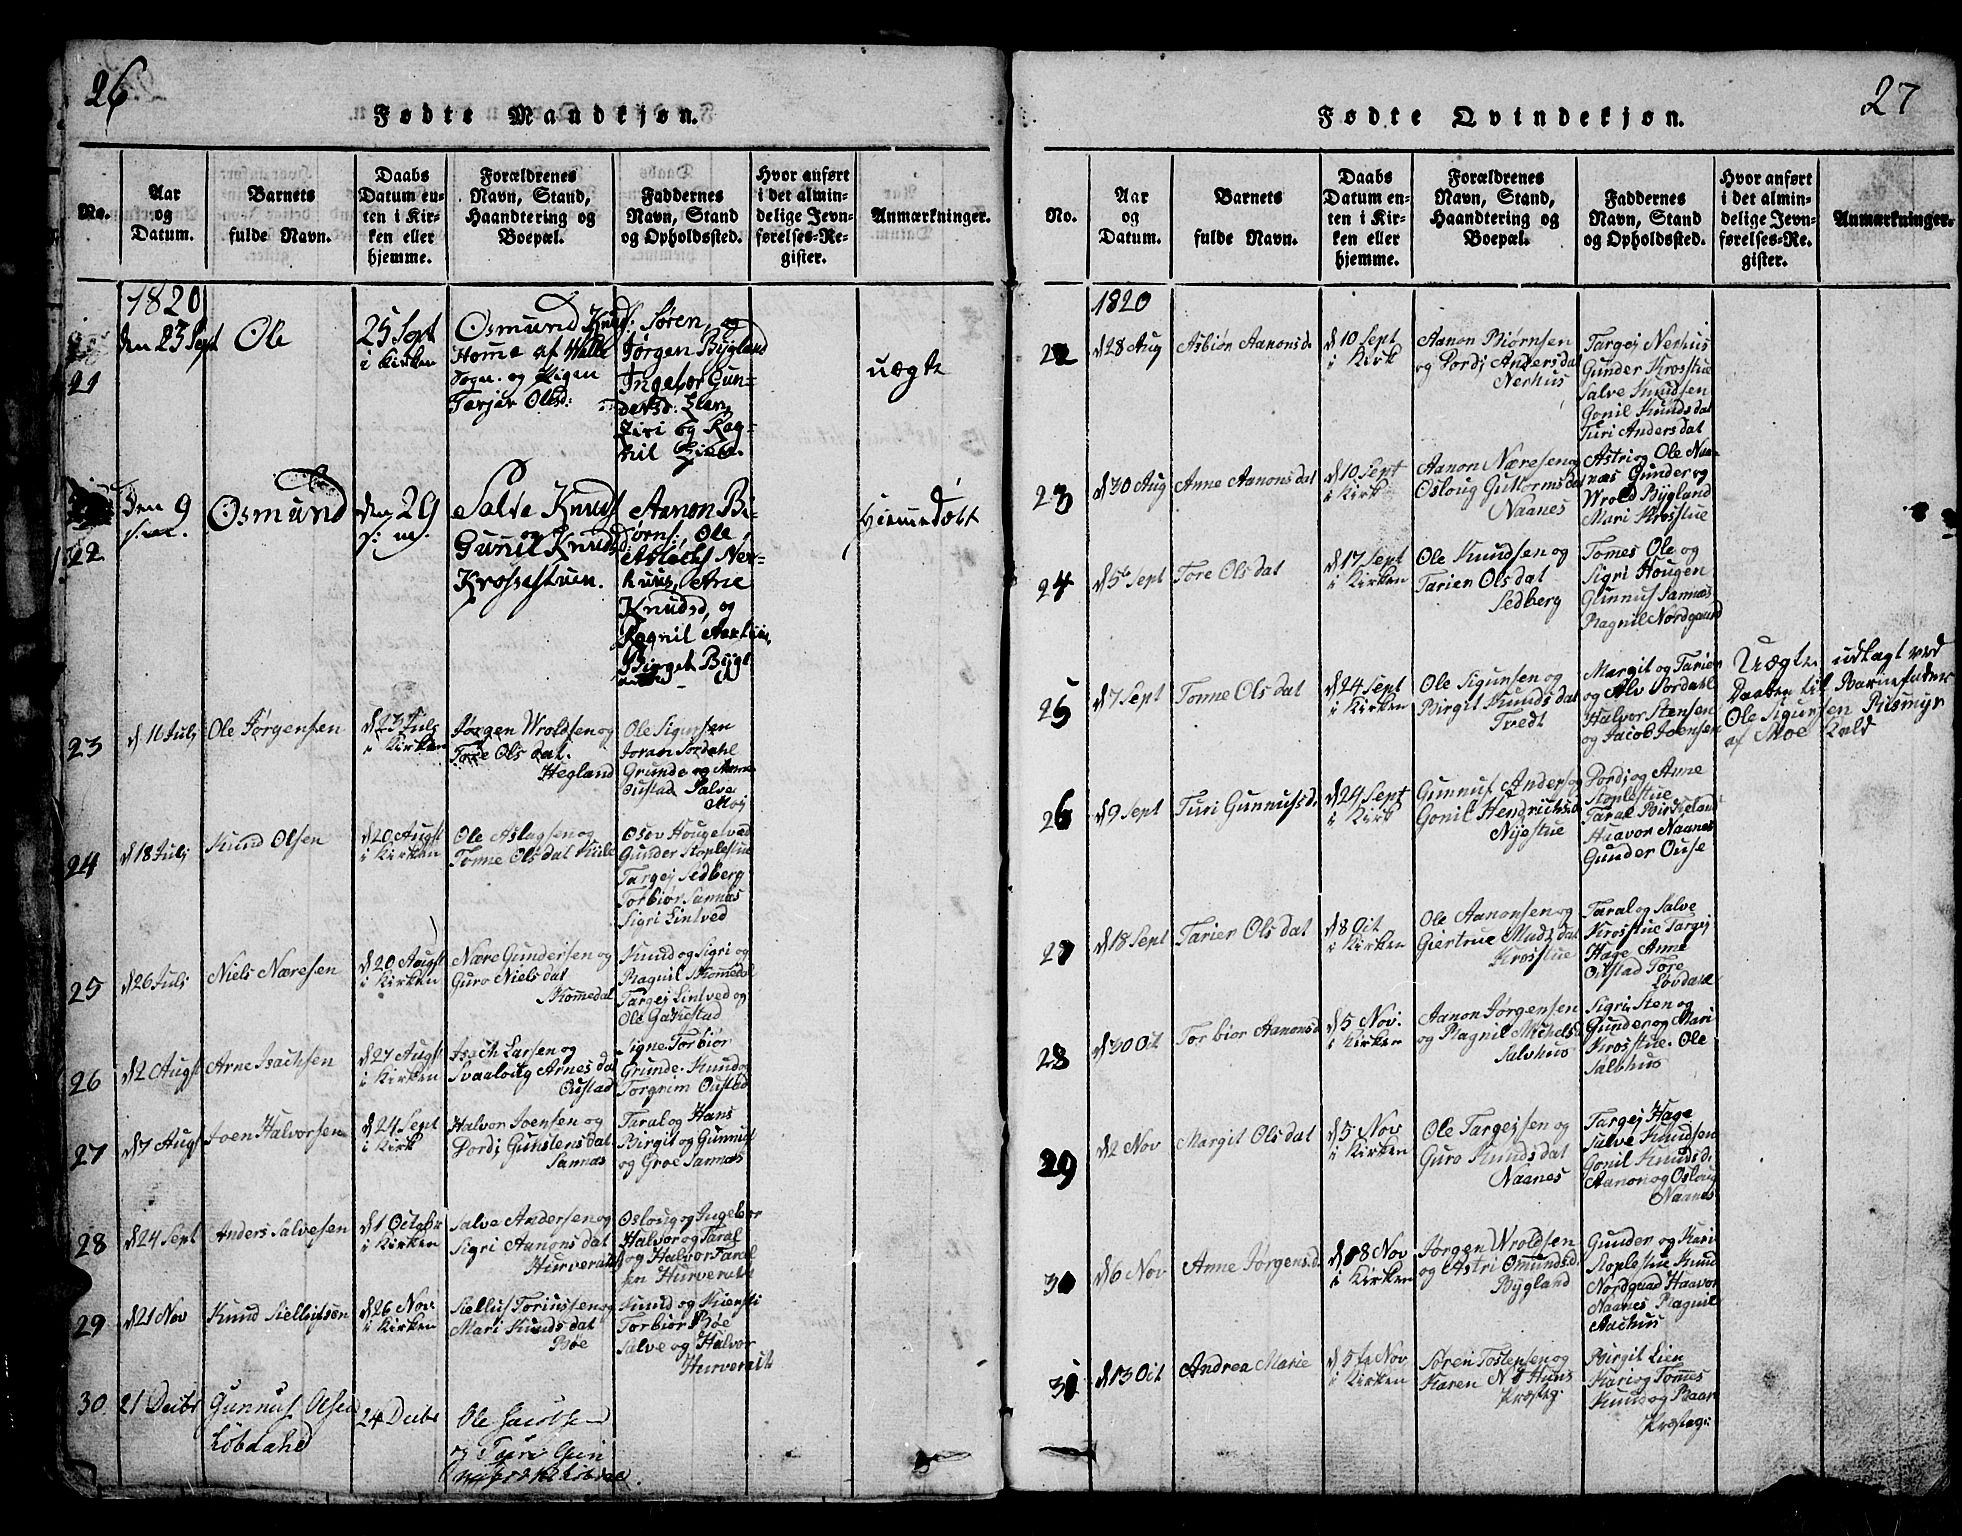 26
Fødte Mandkjøn.
No.
Aar
og
Datum.
Barnets
fulde Navn.
Daabs
Datum en-
ten i Kir-
ken eller
hjemme.
Forældrenes
Navn, Stand,
Haandtering og
Boepæl.
Faddernes
Navn, Stand
og Opholdssted.
Hvor anført
i det almin-
delige Jevn-
førelses-Re-
gister.
Anmærkninger.
1820
21
den 23 Sept
Ole
25 Sept
i Kirken
Osmund Knuds:
Homme af Walle
Sogn. og Pigen
Tarjer Olsd:
Søren, og
Jørgen Bygland
Ingebor Gun-
dersd:
Siri og Rag-
nil
uægte
22
Den 9
Osmund
den 29
Salve Knuds
og
Gunil Knudsd
Krossestuen.
Aanon Bi-
ørns:, Ole
Aslachs Ner-
huus, Ane
Knudsd, og
Ragnil
Birget Bygl
Hiemmedøbt
23
d 16 Juli
Ole Jørgensen
d 23 Juli
i Kirken
Jørgen Wroldsen og
Tore Ols dat.
Hegland
Ole Sigursen
Joran Sordahl
Grunde og Anne
Oustad Salve
Moi
24
d 18 Juli
Knud Olsen
d 20 Augst
i Kirken
Ole Aslagsen og
Tonne Ols dat Kile
Osov Hougetved
Gunder Stoplestue
Targej Sedberg
Torbiør Sannæs
Sigri Lintved
25
d 26 Juli
Niels Næresen
d 20 Augst
i Kirken
Nære Gundersen og
Guro Niels dat
Skomedal
Knud og Sigri og
Ragnil Skomedal
Targej Lintved og
Ole Gakestad
26
d 2 Augst
Arne Isachsen
d 27 Augst
i Kirken
Isach Larsen og
Svaaloug Arnes dat
Oustad
Signe Torbiør
Grunde. Knud og
Torgrim Oustad
27
d 7 Augst
Joen Halvorsen
d 24 Sept
i Kirk
Halvor Joensen og
Dordj Gunstens dat
Sannæs
Taral og Hans
Birgit og Gunnuf
og Groe Sannæs
28
d 24 Sept
Anders Salvesen
d 1 Octobr
i Kirken
Salve Andersen og
Sigri Aanons dat
Hurverak
Osloug og Ingebor
Halvor og Taral
og Halvor Taral
sen Hurverak
29
d 21 Nov
Knud Siellufsøn
d 26 Nov:
i Kirken
Sielluf Toriussen og
Mari Knuds dat
Bøe
Knud og Kiersti
Torbiør Bøe
Salve og Halvor
Hurverak
30
21 Decbr
Gunnuf Olsen
Løbdahl
24 Decbr
Ole Jacobsen
og Turi Gun
27
Fødte Qvindekjøn.
No.
Aar
og
Datum.
Barnets
fulde Navn.
Daabs
Datum en-
ten i Kir-
ken eller
hjemme.
Forældrenes
Navn, Stand,
Haandtering og
Boepæl.
Faddernes
Navn, Stand
og Opholdssted.
Hvor anført
i det almin-
delige Jevn-
førelses-Re-
gister.
Anmærkninger.
1820
22
d 28 Aug
Asbiør Aanonsd.
d 10 Sept
i Kirk
Aanon Biørnsen
og Dordj Anders dat
Nerhus
Targej Nerhus
Gunder Krosstue
Salve Knudsen
Gonil Knuds dat
Turi Anders dat
23
d 30 Aug
Anne Aanons dat
d 10 Sept
i Kirk
Aanon Næresen og
Osloug Guttorms dat
Naanes
Astri og Ole Naa-
næs Gunder og
Wrold Bygland
Mari Krosstue
24
d 5 Sept
Tore Ols dat
d 17 Sept
i Kirken
Ole Knudsen og
Tarier Ols dat
Sedberg
Tomes Ole og
Sigri Hougen
Gunnuf Sannæs
Ragnil Nordgaard
25
d 7 Sept
Tonne Ols dat
d 24 Sept
i Kirken
Ole Sigursen og
Birgit Knuds dat
Tvedt
Margit og Tarier
og Alv Sordahl
Halvor Stensen
og Jacob Joensen
Uægte, udlagt ved
Daaben til Barnefader
Ole Sigursen Rismyr
af Moe Kald
26
d 9 Sept
Turi Gunnufsd.
d 24 Sept
i Kirk
Gunnuf Anders og
Gonil Hendrichsd.
Nyestue
Dordj og Anne
Stoplestue
Taral Birkeland
Haavor Naanes
Gunder Ouse
27
d 18 Sept
Tarier Ols dat
d 8 Oct
i Kirken
Ole Aanonsen og
Giertrue Mads dat
Krosstue
Taral og Salve
Krosstue Targej
Hage Anne
Oustad Tore
Løvdahl
28
d 30 Oct
Torbior Aanonsd.
d 5 Nov:
i Kirken
Aanon Jørgensen
og Ragnil Michelsd
Salvhus
Sigri Sten og
Gunder og Mari
Krosstue. Ole
Salvhus
29
d 2 Nov
Margit Ols dat
d 5 Nov
i Kirken
Ole Targejsen og
Guro Knuds dat
Naanes
Targej Hage
Salve Knudsen
Gonil Knudsd.
Aanon og Osloug
Naanes
30
d 6 Nov
Anne Jørgensd.
d 18 Nov
i Kirken
Jørgen Wroldsen
og Astri Omundsd.
Bygland
Gunder og Kari
Stoplestue Knud
Nordgaad Haavor
Naanes Ragnil
Aachus
31
d 13 Oct
Andrea Marie
d 5te Nov
i Kirken
Søren Tostensen og
Karen N Huns
Præsteg:
Birgit Lien
Kari og Tomes
Knud og Baar
Præsteg: